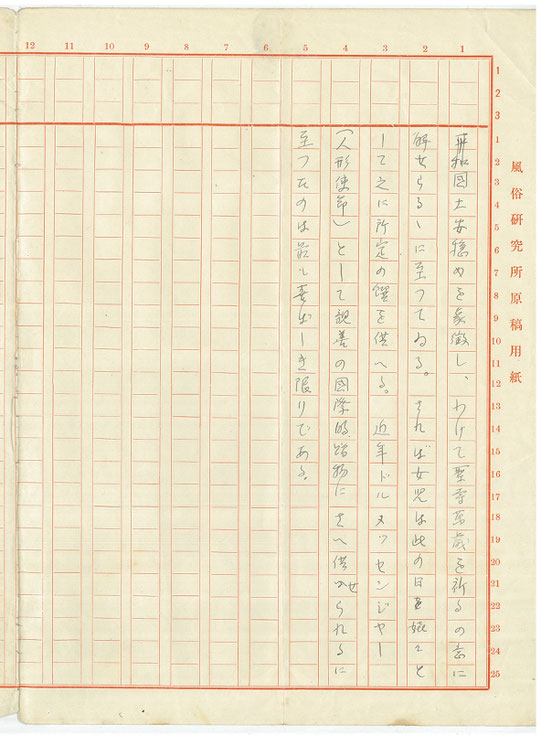 12 11 10 9 8 7 6 5 4 3 2 1
1
2
3
1
2
3
4
5
6
7
8
9
10
11
12
13
14
15
16
17
18
19
20
21
22
23
24
25
風俗研究所原稿用紙
平和國土安穏を象徴し、わけて聖寿萬歳を祈るの意に
解せらるゝに至つてゐる。されば女児は此の日をと
して之に所定の饌を供へる。近年ドルメツセンジヤー
(人形使節)として親善の國際的贈物にさへ供せられるに
至つたのは喜ばしき限りである。